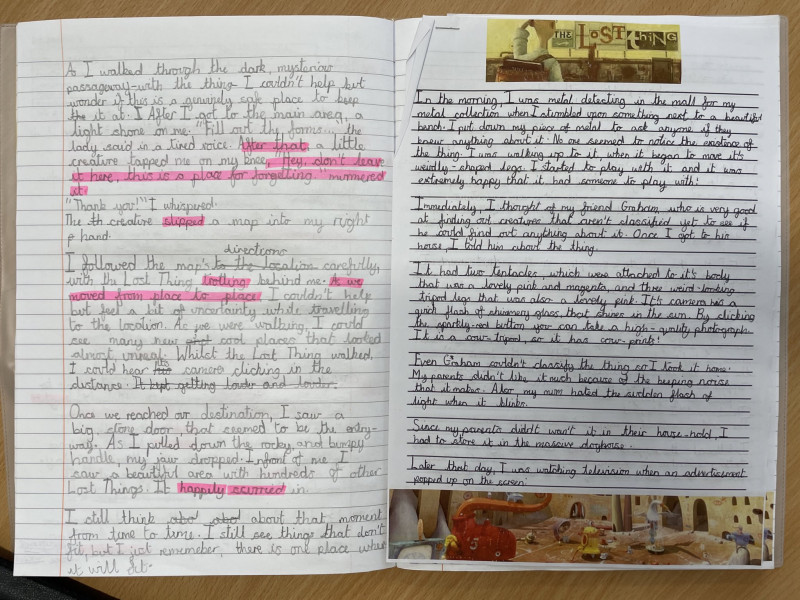 As I walked through the dark, mysterious
passageway-with the thing I couldn't help but
wonder if this is a genuinely safe place to keep
the it at. I After I got to the main area, a
light shone on me. "Fill out thy forms... the
lady said in a tired voice. After that, a little
creative tapped me on my knee, "Hey, don't leave
it here, this is a place for forgetting "murmered
it.
"Thank you!" I whispered.
The th creative slipped a map into my right
p hand.
directions
I followed the map's to the location carefully,
with the Lost Thing trotling behind me. As we
moved from place to place, I couldn't help
but feel a bit of uncertainty while travelling
to the location. As we were walking, I could
see many new and cool places that looked
almost unreal. Whilst the Lost Thing walked,
I could hear his its camera clicking in the
distance. It kept getting louder and louder.
Once we reached our destination, I saw a
big, stone door, that seemed to be the entry-
way. As I pulled down the rocky, and bumpy
handle, my jaw dropped. Infront of me I
saw a beautiful area with hundreds of other
Lost Things. It happily scurried in.
I still think abo abo about that moment
from time to time. I still see things that don't
fit, but I just rememeber, there is one place where
it will fit.
THE LOST THING
In the morning, I was metal detecting in the mall for my
metal collection when I stumbled upon something next to a beautiful
bench. I put down my piece of metal to ask anyone if they
knew anything about it. No one seemed to notice the existence of
the thing. I was walking up to it, when it began to move it's
weirdly-shaped legs. I started to play with it and it was
extremely happy that it had someone to play with!
Immediately, I thought of my friend Graham, who is very good
at finding out creatures that aren't classified yet to see if
he could find out anything about it. Once I got to his
house, I told him about the thing.
It had two tentacles, which were attached to it's body
that was a lovely pink and magenta, and three weird-looking
tripod legs that was also a lovely pink. It's camera has a
quick flash of shimmery glass, that shines in the sun. By clicking
the sparkly-red button you can take a high-quality photograph.
It is a cow-tripod, so it has cow-prints!
Even Graham couldn't classify the thing so I took it home.
My parents didn't like it much because of the beeping noise
that it makes. Also, my mum hated the sudden flash of
light when it blinks.
Since my parents didn't won't it in their house-hold, I
had to store it in the massive doghouse.
Later that day, I was watching television when an advertisement
popped up on the screen.